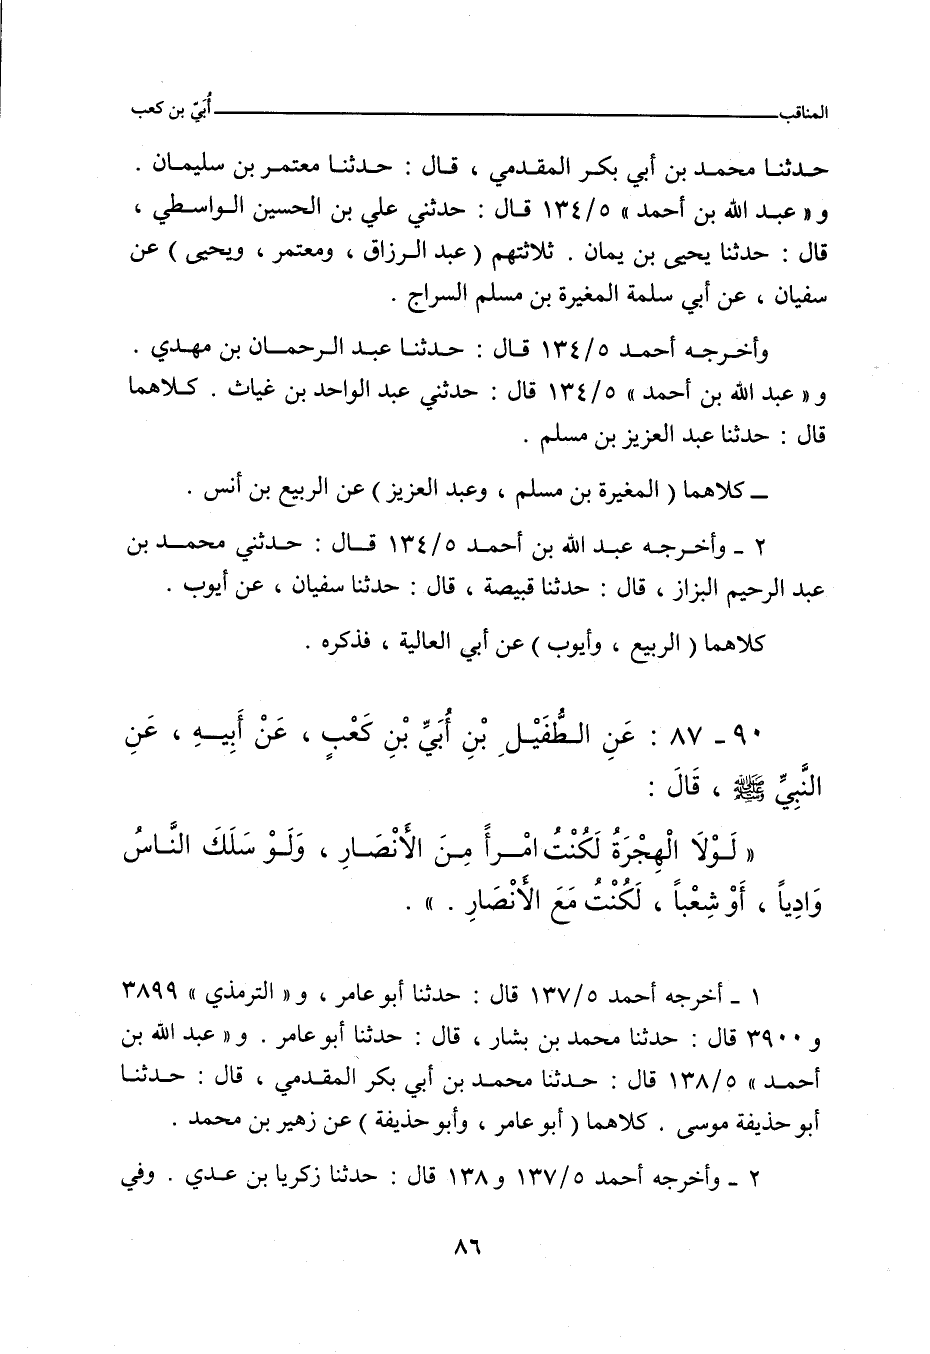 المناقب ــــــ أُبَيّ بن كعب
حدثنا محمد بن أبي بكر المقدمي ، قال : حدثنا معتمر بن سليمان .
و « عبد الله بن أحمد » ١٣٤/٥ قال : حدثني علي بن الحسين الواسطي ،
قال : حدثنا يحيى بن يمان . ثلاثتهم ( عبد الرزاق ، ومعتمر ، ويحيى ) عن
سفيان ، عن أبي سلمة المغيرة بن مسلم السراج .
وأخرجه أحمد ١٣٤/٥ قال : حدثنا عبد الرحمان بن مهدي .
و « عبد الله بن أحمد » ١٣٤/٥ قال : حدثني عبد الواحد بن غياث . كلاهما
قال : حدثنا عبد العزيز بن مسلم .
ــ كلاهما ( المغيرة بن مسلم ، وعبد العزيز ) عن الربيع بن أنس .
٢ ـ وأخرجه عبد الله بن أحمد ١٣٤/٥ قال : حدثني محمد بن
عبد الرحيم البزاز ، قال : حدثنا قبيصة ، قال : حدثنا سفيان ، عن أيوب .
كلاهما ( الربيع ، وأيوب ) عن أبي العالية ، فذكره .
٩٠ ـ ٨٧ : عَنِ الطُّفَيْلِ بْنِ أُبَيِّ بْنِ كَعْبٍ ، عَنْ أَبِيهِ ، عَنِ
النَّبِيِّ ﷺ ، قَالَ :
« لَوْلَا الْهِجْرَةُ لَكُنْتُ امْرأً مِنَ الأَنْصَارِ ، وَلَوْ سَلَكَ النَّاسُ
وَادِياً ، أَوْ شِعْباً ، لَكُنْتُ مَعَ الأَنْصَارِ . » .
١ ـ أخرجه أحمد ١٣٧/٥ قال : حدثنا أبو عامر ، و « الترمذي » ٣٨٩٩
و ٣٩٠٠ قال : حدثنا محمد بن بشار ، قال : حدثنا أبو عامر . و « عبد الله بن
أحمد » ١٣٨/٥ قال : حدثنا محمد بن أبي بكر المقدمي ، قال : حدثنا
أبو حذيفة موسى . كلاهما ( أبو عامر ، وأبو حذيفة ) عن زهير بن محمد .
٢ ـ وأخرجه أحمد ١٣٧/٥ و ١٣٨ قال : حدثنا زكريا بن عدي . وفي
٨٦